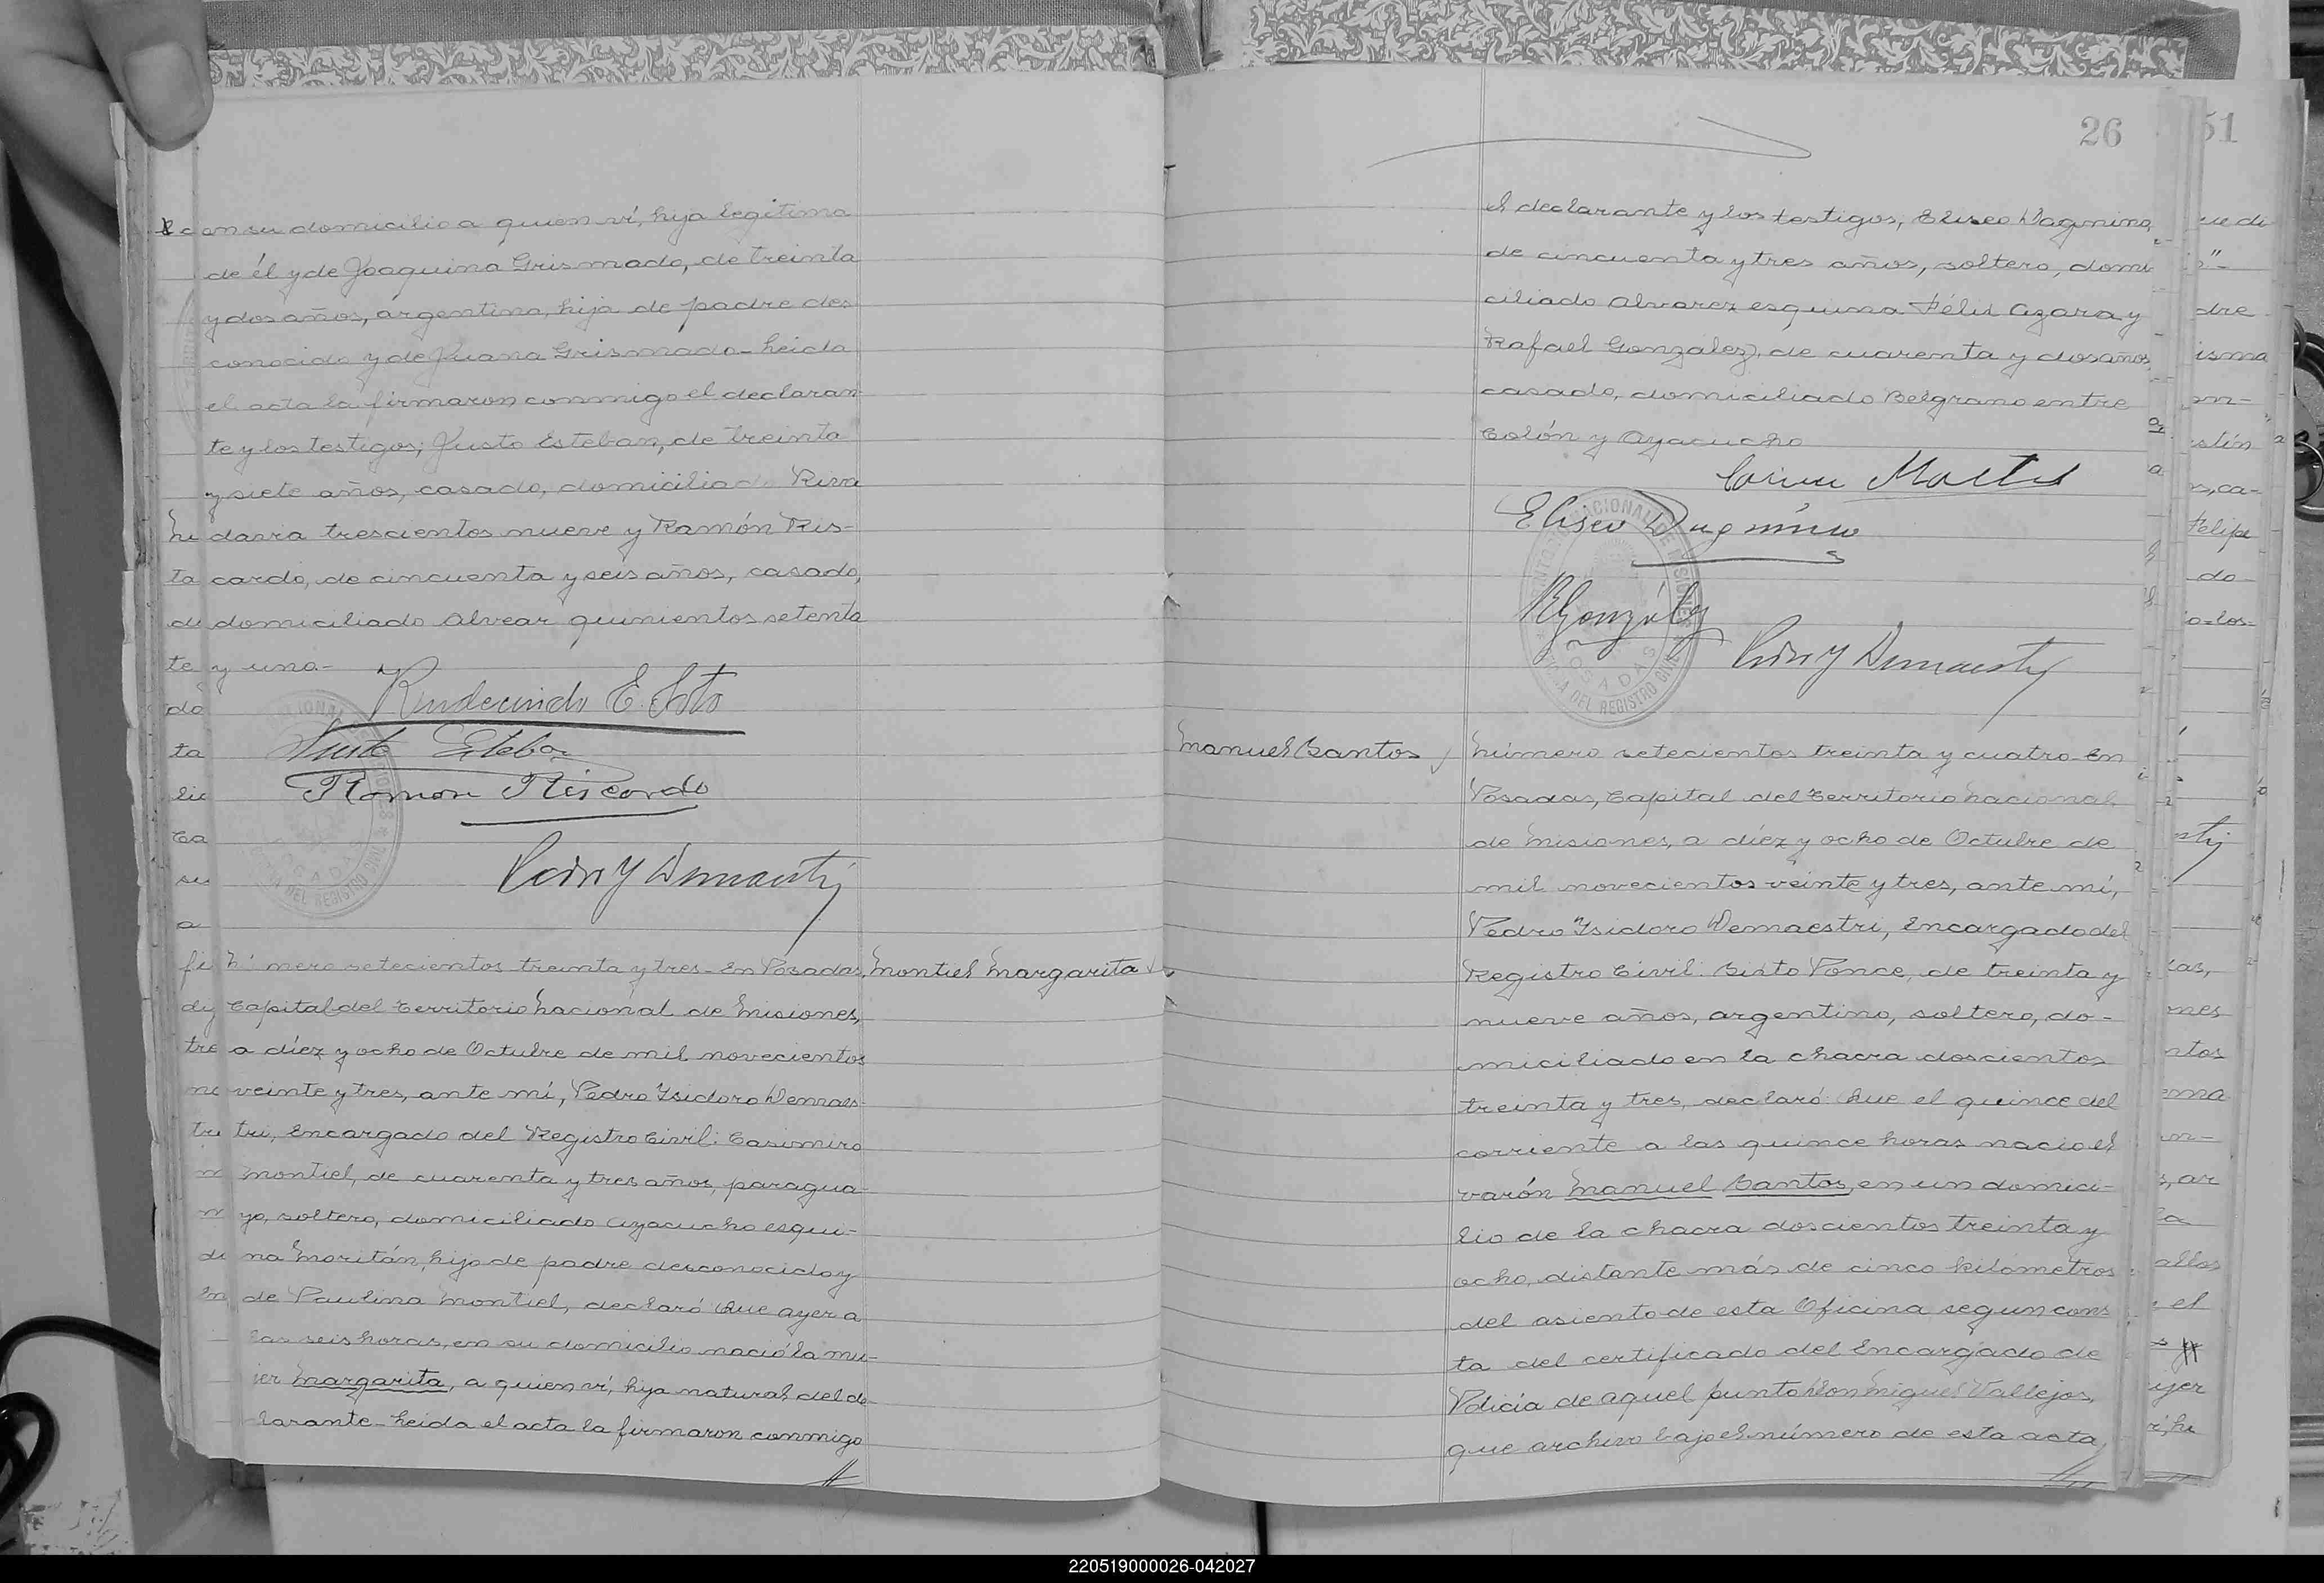 en su domicilio a quien ví, hija legítima
de él y de Joaquina Grismado, de treinta
y dos años, argentina, hija de padre des
conocido y de Juana Grismado - Leida
el acta la firmaron conmigo el declaran
te y los testigos; Justo Esteban, de treinta
y siete años, casado, domiciliado Riva
davia trescientos nueve y Ramón Ris-
cardo, de cincuenta y seis años, casado,
domiciliado Alvear quinientos setenta
y uno.-
Rudecindo E. Soto
Justo Esteban
Ramon Riscardo
Pedro Y Demaestri
Número setecientos treinta y tres - En Posadas,
Montiel Margarita
Capital del Territorio Nacional de Misiones,
a diéz y ocho de Octubre de mil novecientos
veinte y tres, ante mí, Pedro Ysidoro Demaes-
tri, Encargado del Registro Civil: Casimiro
Montiel, de cuarenta y tres años, paragua-
yo, soltero, domiciliado Ayacucho esqui-
na Moritán, hijo de padre desconocido y
de Paulina Montiel, declaró: Que ayer a
las seis horas, en su domicilio nació la mu-
jer Margarita, a quien ví, hija natural del de-
clarante - Leida el acta la firmaron conmigo
26
51
el declarante y los testigos, Eliseo Dagnino,
de cincuenta y tres años, soltero, domi
ciliado Alvarez esquina Félix Azara y
Rafael Gonzalez, de cuarenta y dos años,
casado, domiciliado Belgrano entre
Colón y Ayacucho
Eliseo Dagnino
RGonzález
Pedro Y Demaestri
Manuel Santos
Número setecientos treinta y cuatro - En
Posadas, Capital del Territorio Nacional
de Misiones, a diéz y ocho de Octubre de
mil novecientos veinte y tres, ante mí,
Pedro Ysidoro Demaestri, Encargado del
Registro Civil: Sixto Ponce, de treinta y
nueve años, argentino, soltero, do-
miciliado en la chacra doscientos
treinta y tres, declaró: Que el quince del
corriente a las quince horas nació el
varón Manuel Santos, en un domici-
lio de la chacra doscientos treinta y
ocho, distante más de cinco kilómetros
del asiento de esta Oficina segun cons
ta del certificado del Encargado de
Policía de aquel punto Don Miguel Vallejos,
que archivo bajo el número de esta acta,
220519000026-042027